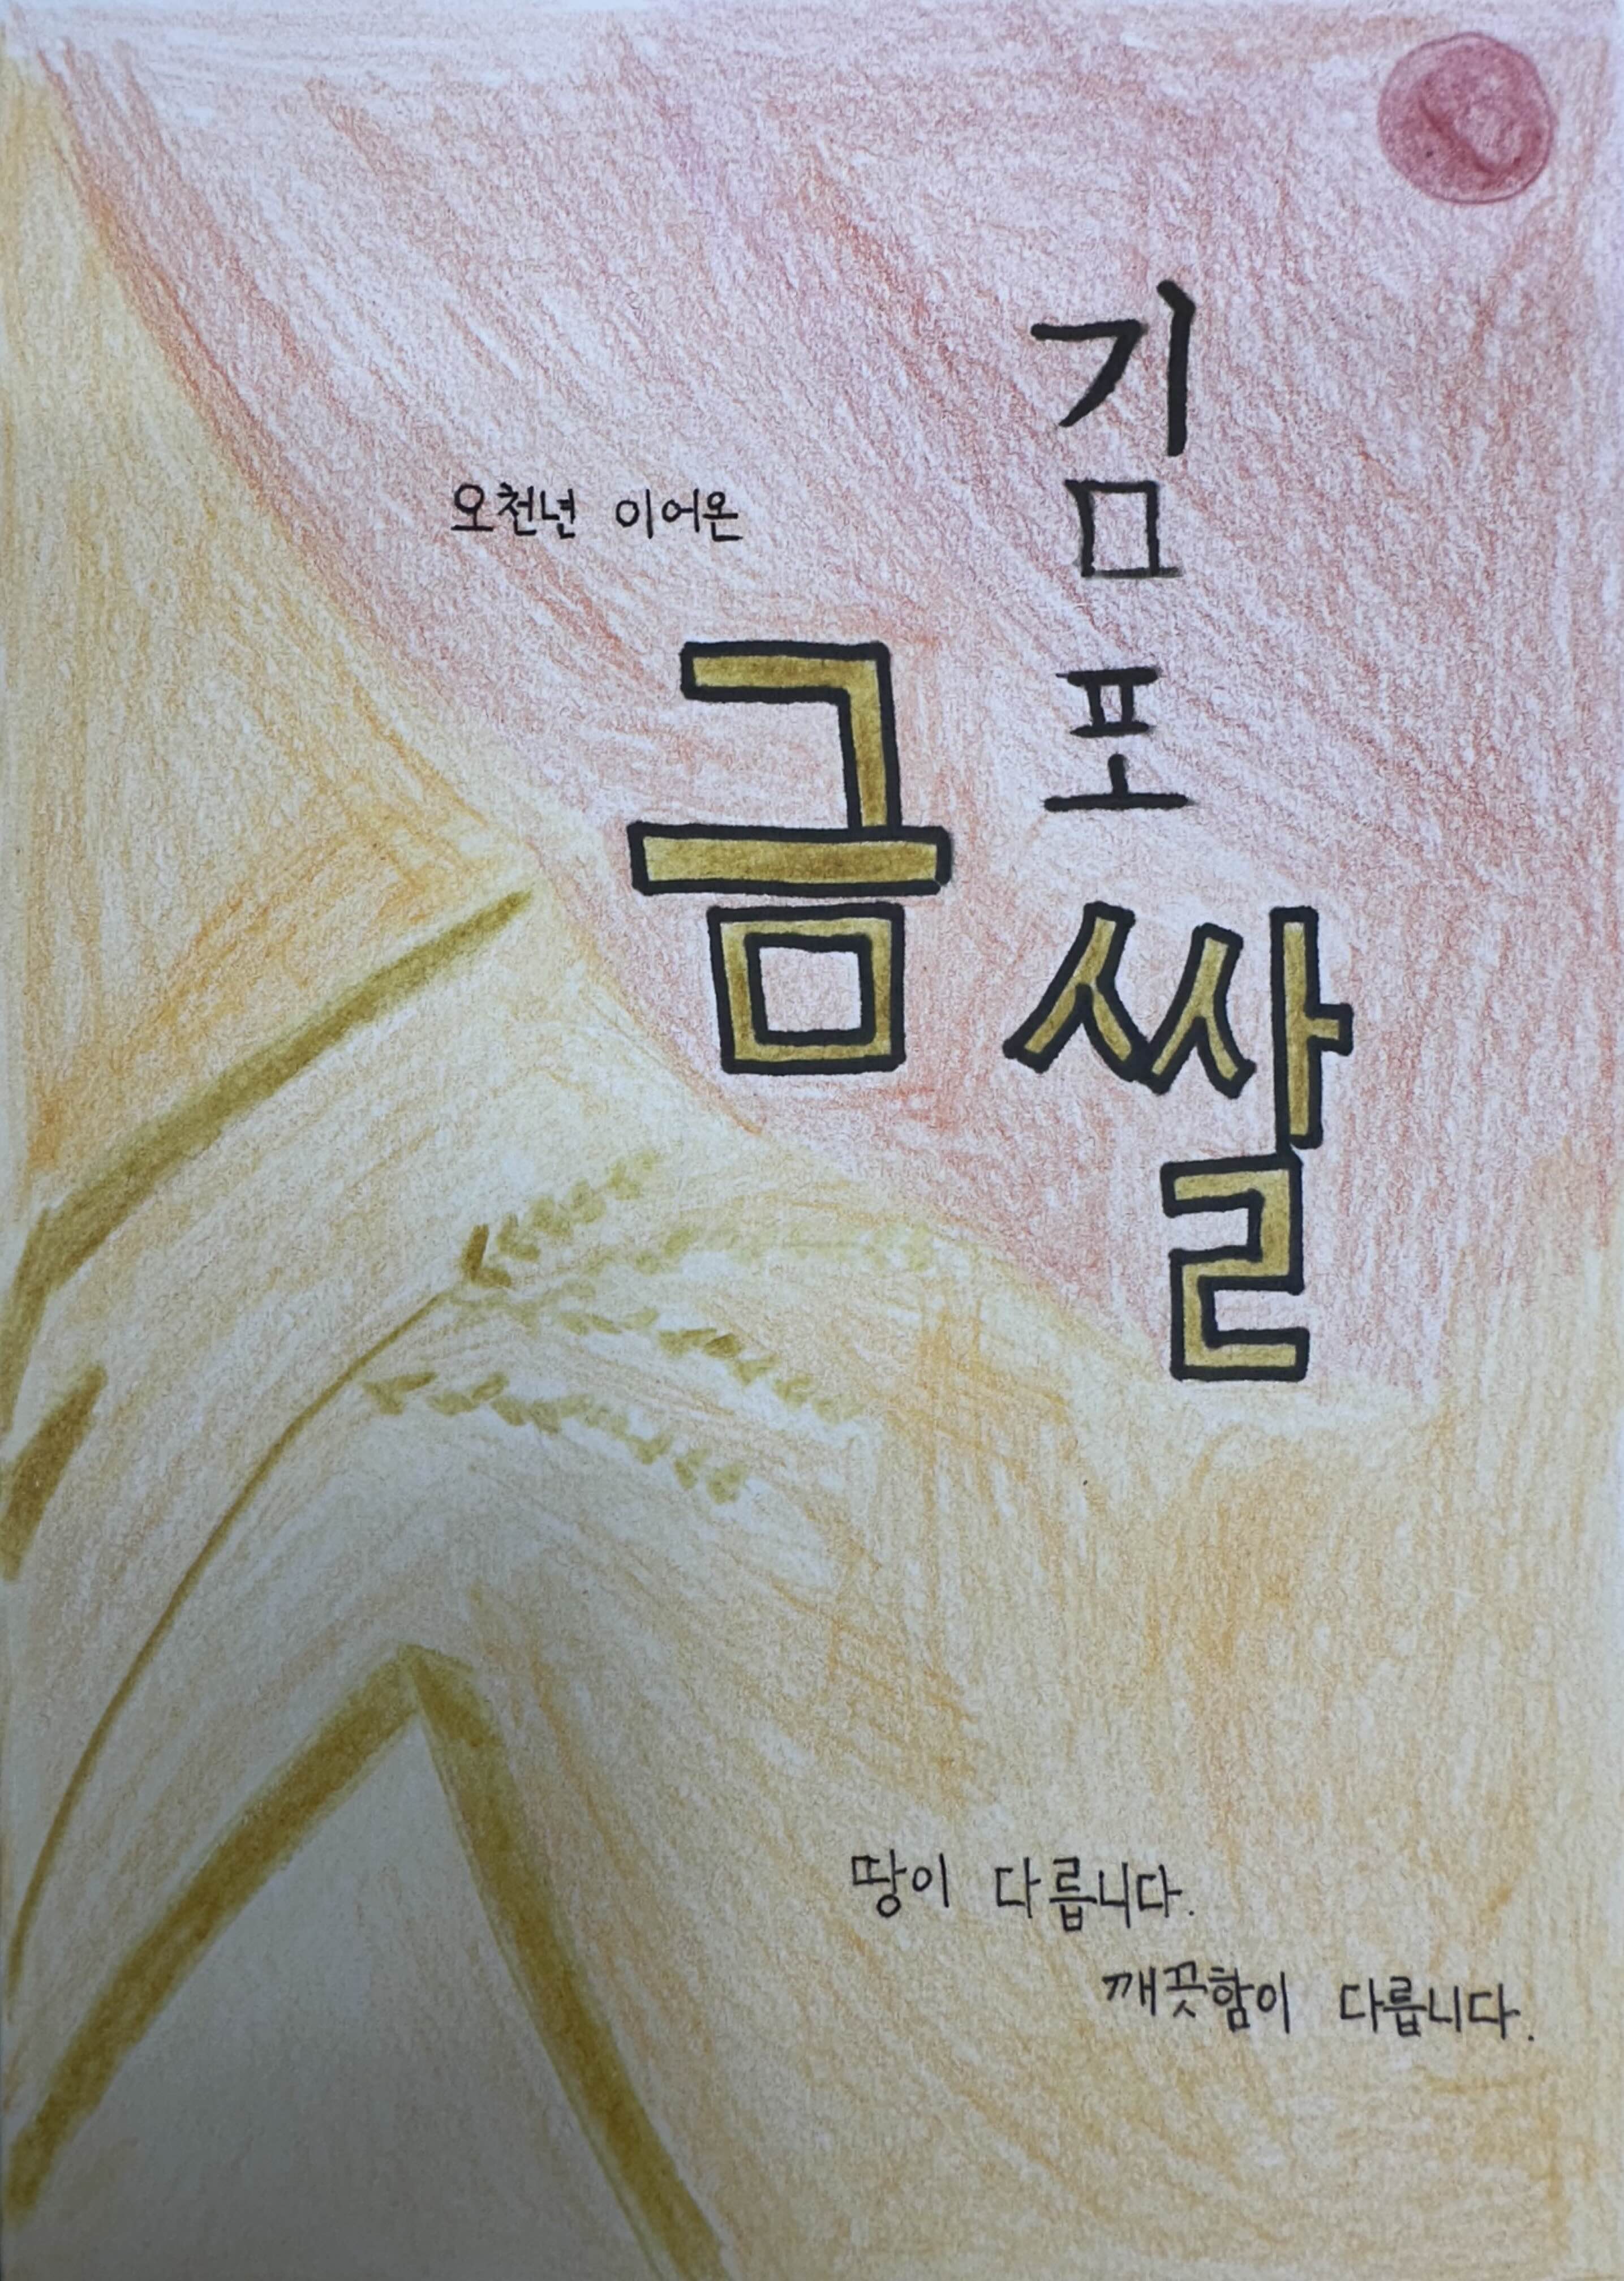 오천년 이어온
김포
금쌀
땅이 다릅니다.
깨끗함이 다릅니다.